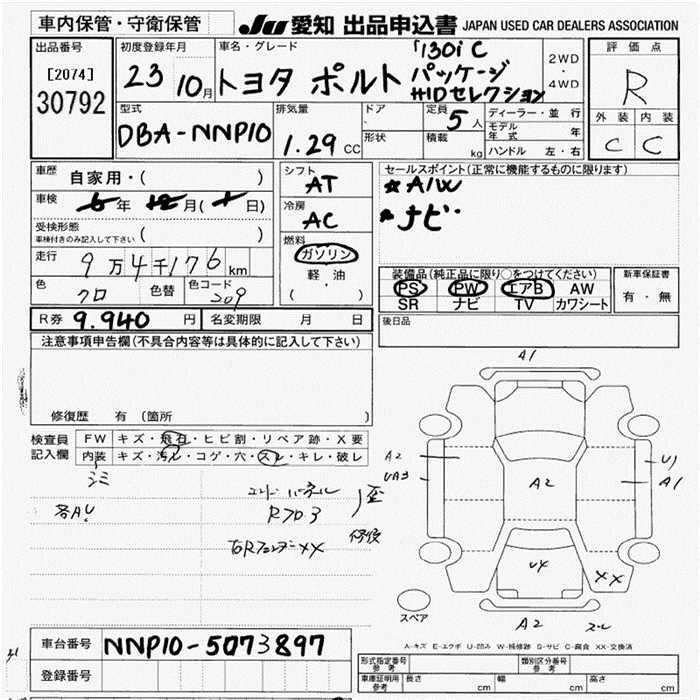 車内保管・守衛保管 JU 愛知 出品申込書 JAPAN USED CAR DEALERS ASSOCIATION
出品番号 初度登録年月 車名・グレード 評価点
[2074] 23 10月 トヨタ ポルト 「130i C パッケージ HIDセレクション 2WD・4WD R
30792
型式 排気量 ドア 定員 5 人 ディーラー・並行 外装 内装
DBA-NNP10 1.29 CC 形状 積載 kg モデル年式 年 C C
ハンドル 左・右
車歴 自家用・( ) シフト AT セールスポイント(正常に機能するものに限ります)
★A/W
車検 年 月( 日) 冷房 AC ナビ
受検形態 ( )
車検付きのみ記入して下さい
燃料 ガソリン
走行 9万4千176km 軽・油
( )
装備品(純正品に限り○をつけてください) 新車保証書
PS PW エアB AW 有・無
SR ナビ TV カワシート
色 クロ 色替 色コード 209
R券 9.940 円 名変期限 月 日 後日品
注意事項申告欄(不具合内容等は具体的に記入して下さい)
修復歴 有(箇所 )
検査員 FW キズ・飛石・ヒビ割・リペア跡・X要
記入欄 内装 キズ・汚レ・コゲ・穴・スレ・キレ・破レ
シミ
各AU
修復
A1
A2
UA3
A2
U1
A1
U4
XX
A2
スレ
スペア
A-キズ E-エクボ U-凹み W-補修跡 S-サビ C-腐食 XX-交換済
車台番号 NNP10-5073897
登録番号
型式指定番号 参考 類別区分番号 参考
車庫証明用 参考 長さ cm 幅 cm 高さ cm